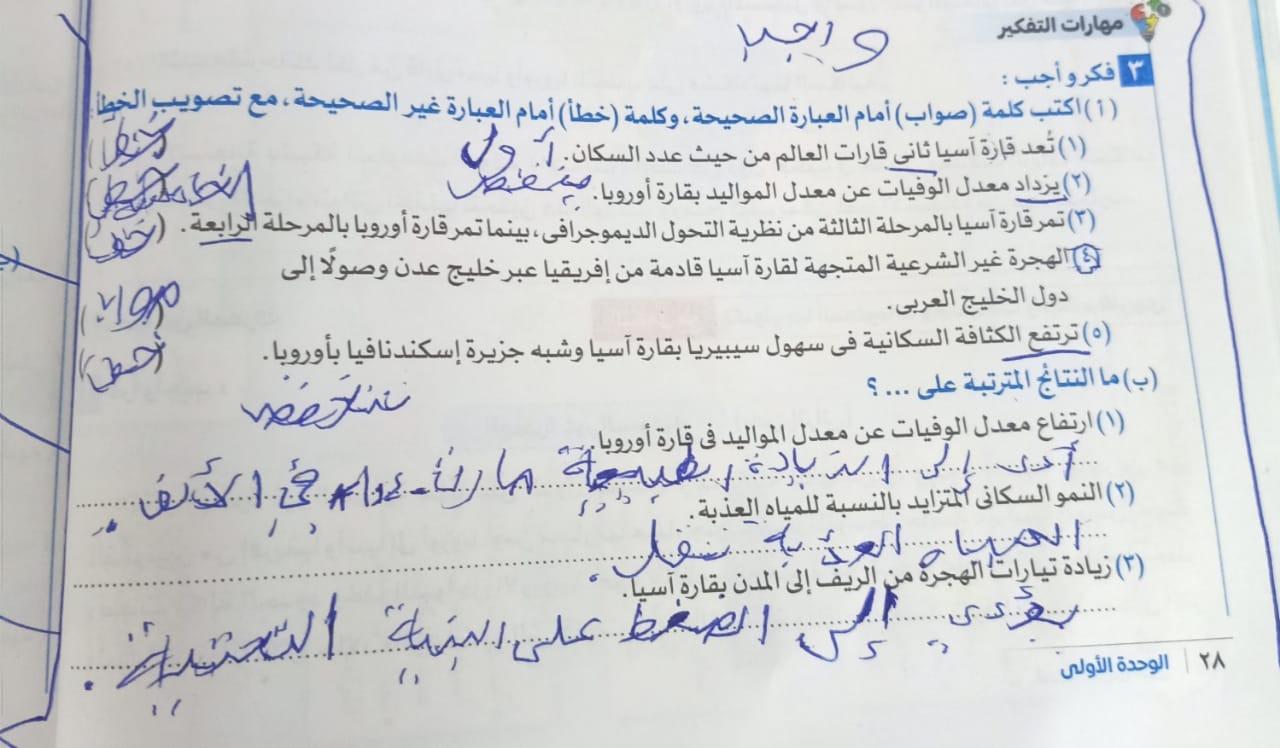 مهارات التفكير
واجب
٣ فكر و أجب :
(أ) اكتب كلمة (صواب) أمام العبارة الصحيحة، وكلمة (خطأ) أمام العبارة غير الصحيحة، مع تصويب الخطأ:
(١) تُعد قارة آسيا ثانى قارات العالم من حيث عدد السكان. أول (خطأ)
(٢) يزداد معدل الوفيات عن معدل المواليد بقارة أوروبا. ينخفض
(٣) تمر قارة آسيا بالمرحلة الثالثة من نظرية التحول الديموجرافى، بينما تمر قارة أوروبا بالمرحلة الرابعة. (خطأ)
(٤) الهجرة غير الشرعية المتجهة لقارة آسيا قادمة من إفريقيا عبر خليج عدن وصولًا إلى
دول الخليج العربى. (صواب)
(٥) ترتفع الكثافة السكانية فى سهول سيبيريا بقارة آسيا وشبه جزيرة إسكندنافيا بأوروبا. (خطأ)
تنخفض
(ب) ما النتائج المترتبة على ... ؟
(١) ارتفاع معدل الوفيات عن معدل المواليد فى قارة أوروبا
أدى إلى الزيادة الطبيعية فى الألف.
(٢) النمو السكانى المتزايد بالنسبة للمياه العذبة.
المياه العذبة تقل.
(٣) زيادة تيارات الهجرة من الريف إلى المدن بقارة آسيا.
يؤدى إلى الضغط على البنية التحتية.
٢٨ | الوحدة الأولى